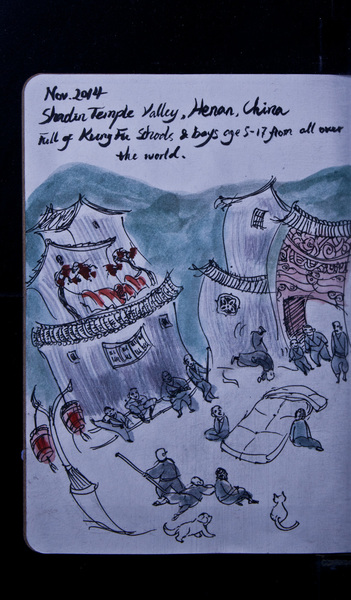 Nov. 2014
Shaolin Temple Valley, Henan, China
Full of Kung Fu Schools, & boys age 5-17 from all over
the world.